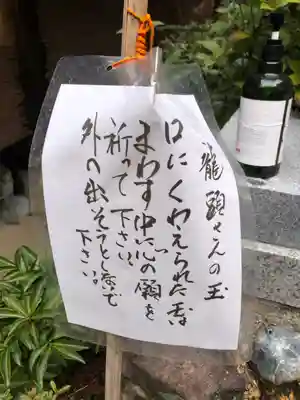 龍頭さんの玉
口にくわえられた玉
まわす中心の願を
祈って下さい。
外の出そうとしないで
下さい。